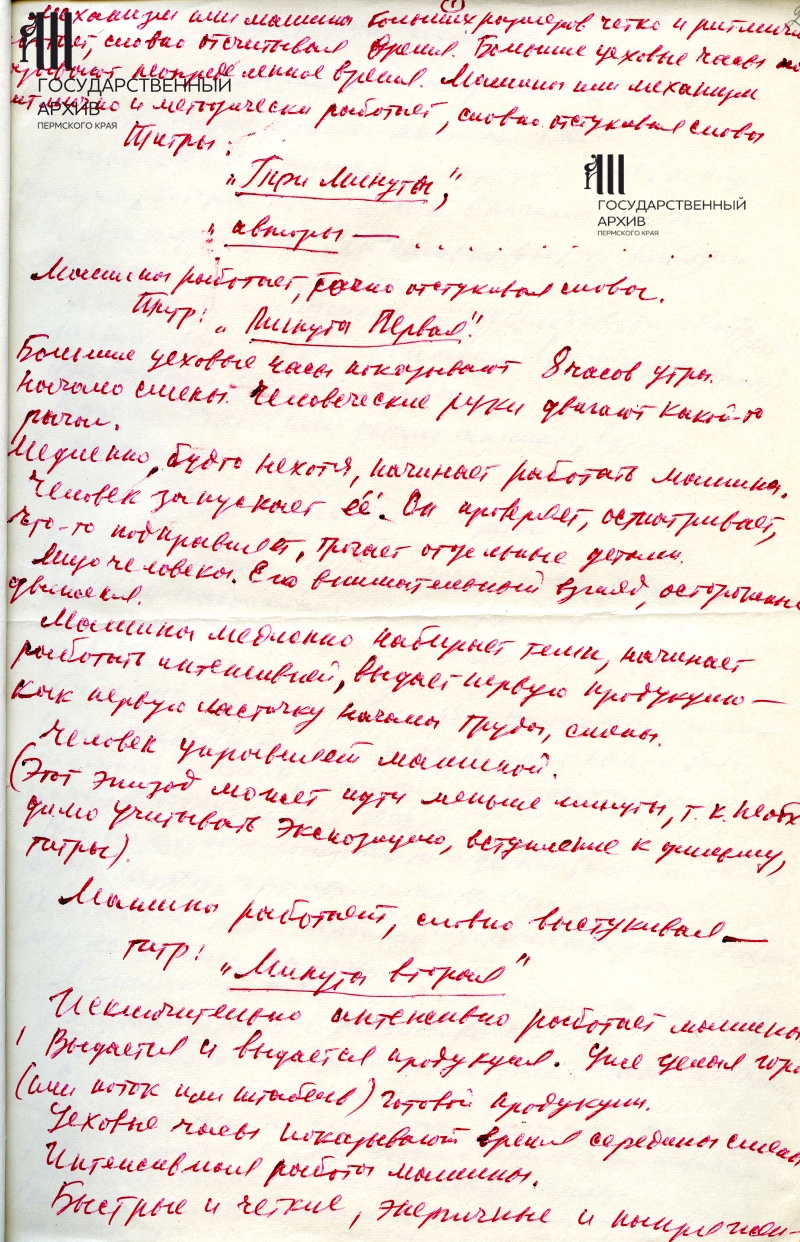 ①
Механизм или машина больших размеров четко и ритмично
работает, словно отсчитывая время. Большие цеховые часы по
казывают неопределенное время. Машина или механизм
ритмично и методически работает, словно отстукивая слова
ГОСУДАРСТВЕННЫЙ
АРХИВ
ПЕРМСКОГО КРАЯ
Титры:
„Три минуты",
ГОСУДАРСТВЕННЫЙ
АРХИВ
ПЕРМСКОГО КРАЯ
„авторы — . . . . . . . .
Машина работает, точно отстукивая слова.
Титр: „Минута Первая".
Большие цеховые часы показывают 8 часов утра.
Начало смены. Человеческие руки двигают какой-то
рычаг.
Медленно, будто нехотя, начинает работать машина.
Человек запускает её. Он проверяет, осматривает,
что-то подправляет, трогает отдельные детали.
Лицо человека. Его внимательный взгляд, осторожные
движения.
Машина медленно набирает темп, начинает
работать интенсивней, выдает первую продукцию —
как первую ласточку начала труда, смены.
Человек управляет машиной.
(Этот эпизод может идти меньше минуты, т.к. необх
димо учитывать экспозицию, вступление к фильму,
титры).
Машина работает, словно выстукивая —
титр: „Минута вторая"
Исключительно интенсивно работает машина
Выдается и выдается продукция. Уже целая гора
(или поток или штабель) готовой продукции.
Цеховые часы показывают время середины смены
Интенсивная работа машины.
Быстрые и четкие, энергичные и напряжен-